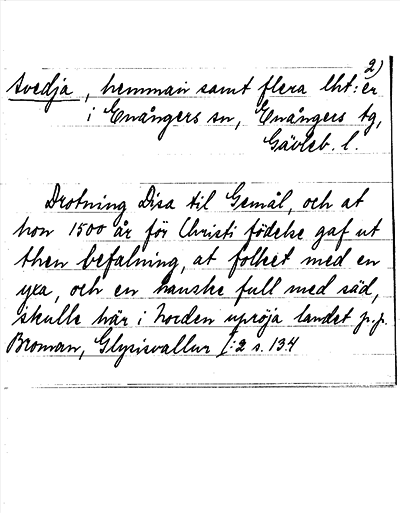 2)
Svedja, hemman samt flera lht:er
i Enångers sn, Enångers tg,
Gävleb. l.
Drotning Disa til Gemål, och at
hon 1500 år för Christi födelse gaf ut
then befalning, at folket med en
yxa, och en hanske full med säd,
skulle här i Norden upröja landet p.p.
Broman, Glysisvallur I:2 s. 134